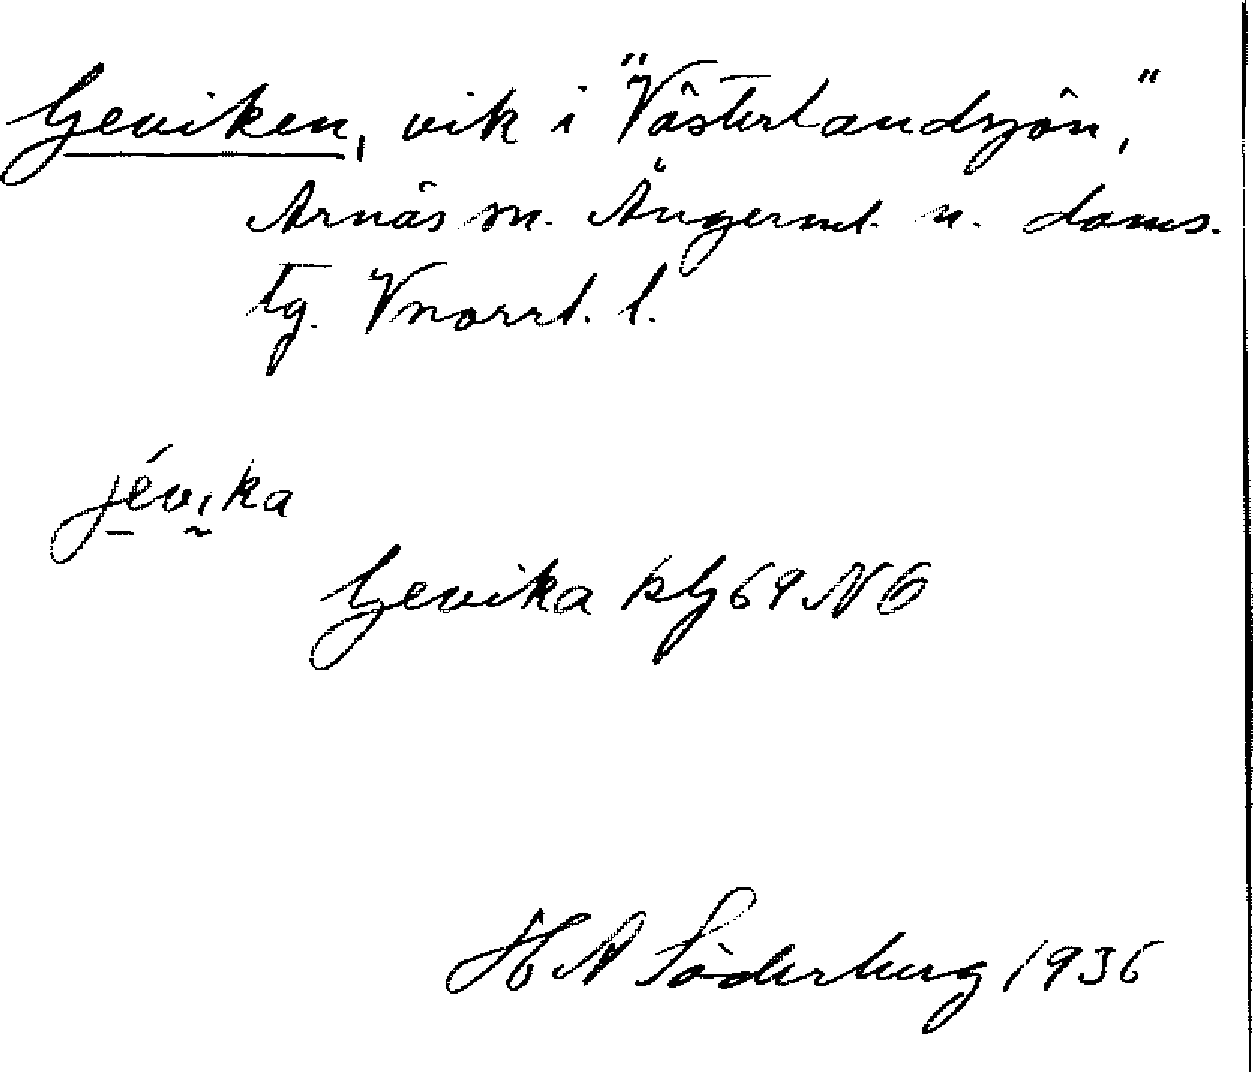 Geviken, vik i "Västerlandsjön,"
Arnäs sn. Ångerml. n. doms.
tg. Vnorrl. l.
jévika
Gevika kbl 69 NO
H A Söderberg 1936